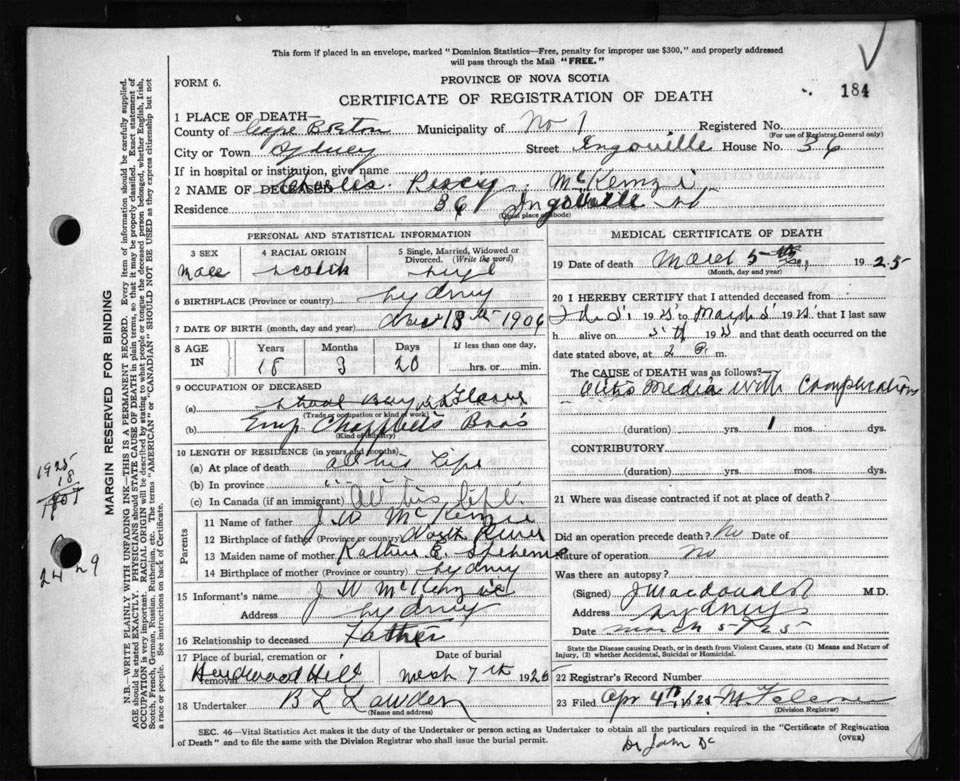 This form if placed in an envelope, marked "Dominion Statistics—Free, penalty for improper use $300," and properly addressed
will pass through the Mail "FREE."
FORM 6.
PROVINCE OF NOVA SCOTIA
184
CERTIFICATE OF REGISTRATION OF DEATH
1 PLACE OF DEATH—
County of Cape Breton Municipality of No 1 Registered No.
(For use of Registrar General only)
City or Town Sydney Street Ingoville House No. 36
If in hospital or institution, give name
2 NAME OF DECEASED Charles Percy McKenzie
Residence 36 Ingoville
(Usual place of abode)
PERSONAL AND STATISTICAL INFORMATION
3 SEX Male
4 RACIAL ORIGIN Scotch
5 Single, Married, Widowed or Divorced. (Write the word)
6 BIRTHPLACE (Province or country) Sydney
7 DATE OF BIRTH (month, day and year) 1906
8 AGE IN Years 18 Months 3 Days 20 If less than one day, hrs. or min.
9 OCCUPATION OF DECEASED
(a)
(Trade or occupation or kind of work)
(b) Emp. Bros
(Kind of industry)
10 LENGTH OF RESIDENCE (in years and months)
(a) At place of death all his life
(b) In province " " "
(c) In Canada (if an immigrant) All his life.
Parents
11 Name of father J W McKenzie
12 Birthplace of father (Province or country) North River
13 Maiden name of mother E.
14 Birthplace of mother (Province or country) Sydney
15 Informant's name J W McKenzie
Address Sydney
16 Relationship to deceased Father
17 Place of burial, cremation or removal Hardwood Hill
Date of burial 7th 1925
18 Undertaker B L
(Name and address)
MEDICAL CERTIFICATE OF DEATH
19 Date of death March 5th 1925
(Month, day and year)
20 I HEREBY CERTIFY that I attended deceased from
to March 5 1925 that I last saw
h alive on 5th 1925 and that death occurred on the
date stated above, at 2 P. m.
The CAUSE of DEATH was as follows?
Otitis Media with Complications
(duration) yrs. 1 mos. dys.
CONTRIBUTORY
(duration) yrs. mos. dys.
21 Where was disease contracted if not at place of death?
Did an operation precede death? No Date of
Nature of operation No
Was there an autopsy?
(Signed) J Macdonald M.D.
Address Sydney
Date March 5/25
State the Disease causing Death, or in death from Violent Causes, state (1) Means and Nature of
Injury, (2) whether Accidental, Suicidal or Homicidal.
22 Registrar's Record Number
23 Filed Apr 4th 1925
(Division Registrar)
SEC. 46—Vital Statistics Act makes it the duty of the Undertaker or person acting as Undertaker to obtain all the particulars required in the "Certificate of Registration
of Death" and to file the same with the Division Registrar who shall issue the burial permit.
(OVER)
MARGIN RESERVED FOR BINDING
N.B.—WRITE PLAINLY WITH UNFADING INK—THIS IS A PERMANENT RECORD. Every item of information should be carefully supplied.
AGE should be stated EXACTLY. PHYSICIANS should STATE CAUSE OF DEATH in plain terms, so that it may be properly classified. Exact statement of
OCCUPATION is very important. RACIAL ORIGIN will be described by stating to what people or tongue the deceased person belonged, whether English, Irish,
Scotch, French, German, Russian, Ruthenian, etc. The terms "AMERICAN" or "CANADIAN" SHOULD NOT BE USED as they express citizenship but not
a race or people. See instructions on back of Certificate.
1925
18
1907